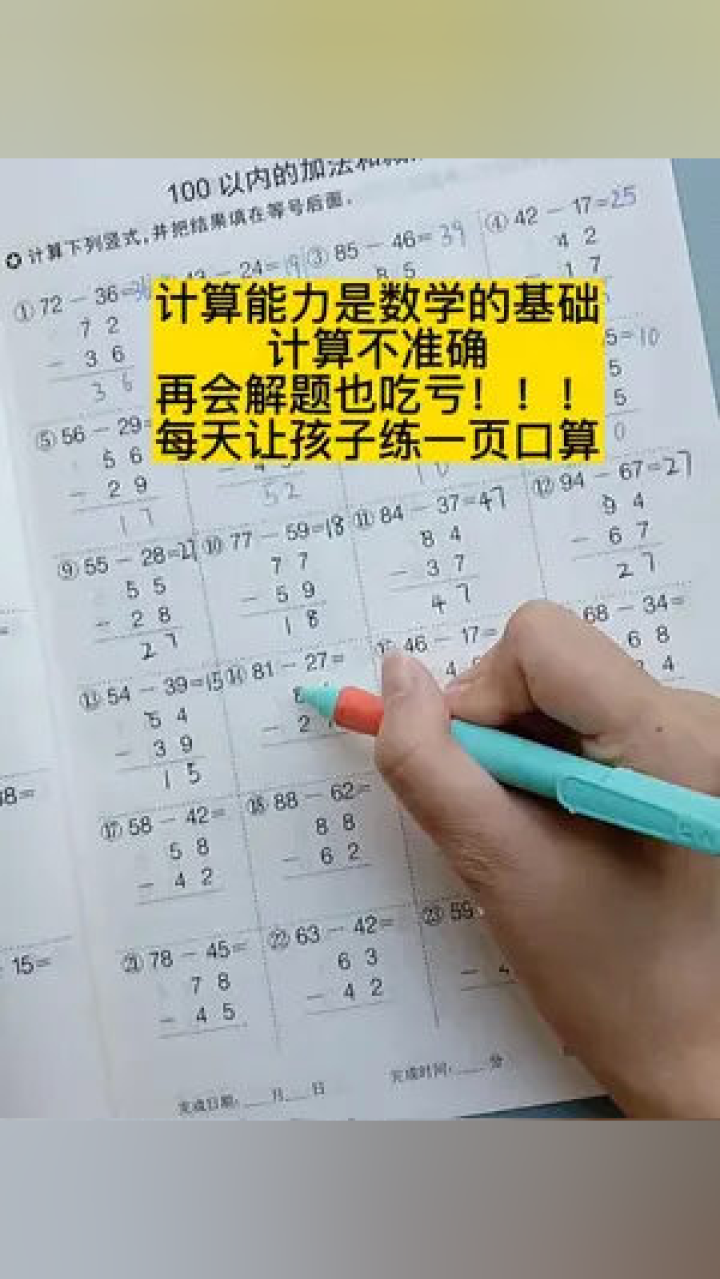 100 以内的加法和
✪ 计算下列竖式,并把结果填在等号后面。
① 72 － 36=36
7 2
－ 3 6
3 6
－ 24=19
③ 85 － 46=39
8 5
④ 42 － 17=25
4 2
－ 1 7
计算能力是数学的基础
计算不准确
再会解题也吃亏！！！
每天让孩子练一页口算
⑤ 56 － 29=
5 6
－ 2 9
1 7
5 2
1 0
5=10
5
5
0
⑨ 55 － 28=27
5 5
－ 2 8
2 7
⑩ 77 － 59=18
7 7
－ 5 9
1 8
⑪ 84 － 37=47
8 4
－ 3 7
4 7
⑫ 94 － 67=27
9 4
－ 6 7
2 7
⑬ 54 － 39=15
5 4
－ 3 9
1 5
⑭ 81 － 27=
8
－ 2
46 － 17=
4
68 － 34=
6 8
4
8=
⑰ 58 － 42=
5 8
－ 4 2
⑱ 88 － 62=
8 8
－ 6 2
- 15=
㉑ 78 － 45=
7 8
－ 4 5
㉒ 63 － 42=
6 3
－ 4 2
㉓ 59
－ 4
完成日期:___月___日
完成时间:____分